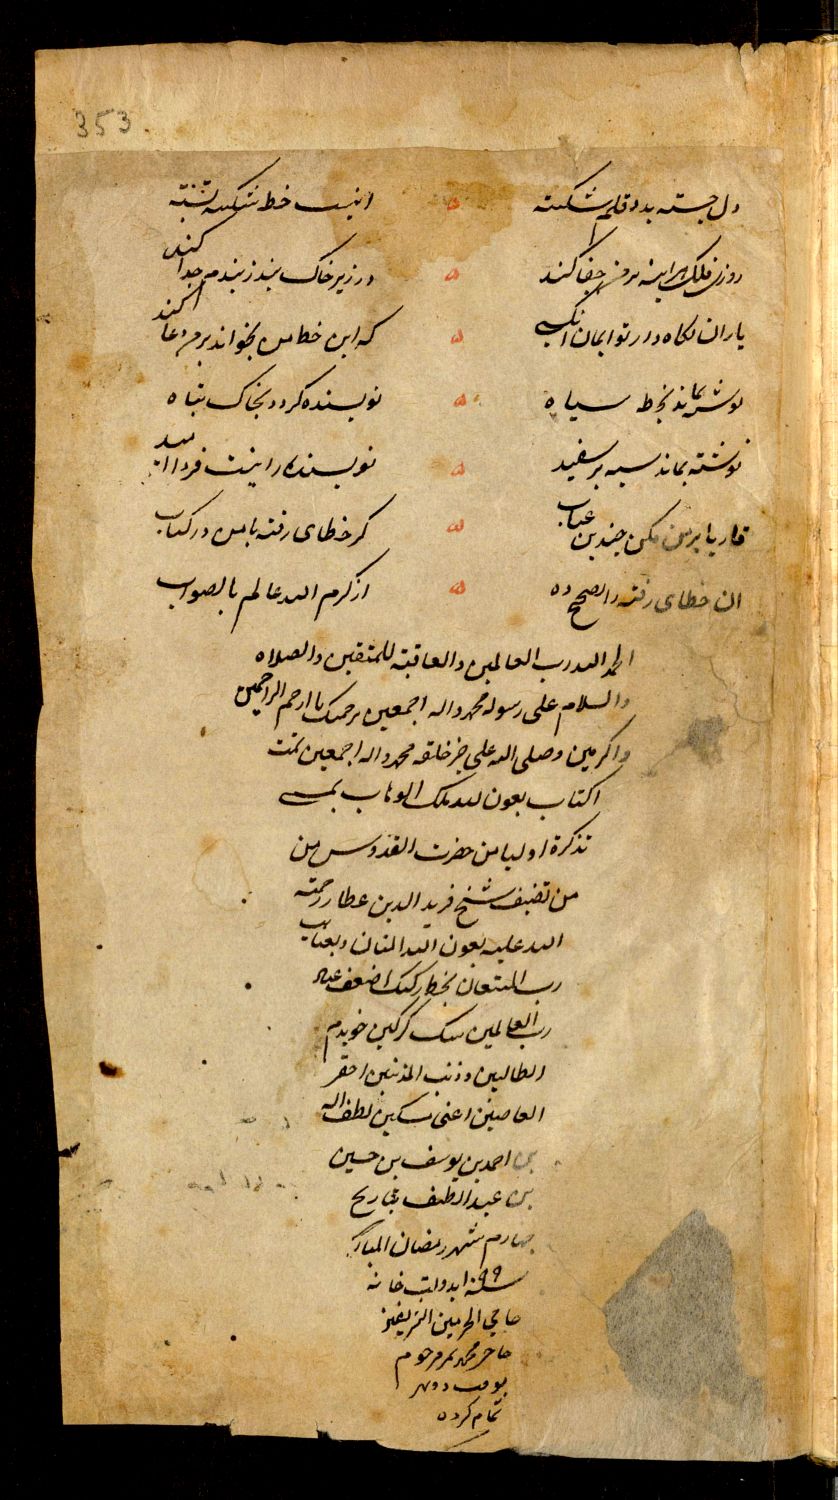 353
دل خسته بد و قلم شکسته اینست خط شکسته بسته
روزی فلک هراینه بر من جفا کند در زیر خاک بند ز بندم جدا کند
یاران نکاه دار تو ایمان انکسی که این خط من بخواند بر من دعا کند
نوشته بماند بخط سیاه نویسنده کردد بخاک تباه
نوشته بماند سیه بر سفید نویسنده را نیست فردا امید
قاریا بر من مکن چندین عتاب کر خطای رفته باشد در کتاب
ان خطای رفته را تصحیح ده از کرم الله عالم بالصواب
الحمد الله رب العالمین والعاقبة للمتقین والصلاه
والسلام علی رسوله محمد واله اجمعین برحمتک یا ارحم الراحمین
واکرمین وصلی الله علی خیر خلقه محمد واله اجمعین تمت
الکتاب بعون الله ملک الوهاب
تذکرة اولیا من حضرت القدوس من
من تصنیف شیخ فرید الدین عطار رحمة
الله علیه بعون الله المنان و بعنایت
رب المستعان بخط اضعف عباد
رب العالمین سک کرکین خویدم
الطالبین و ذنب المذنبین احقر
العاصین اعنی مسکین لطف الله
بن احمد بن یوسف بن حسین
بن عبد الطیف بتاریخ
چهارم شهر رمضان المبارک
سنه ۹۹ بدولت خانه
حاجی الحرمین الشریفین
محمد مرحوم
بوقت
تمام کرده